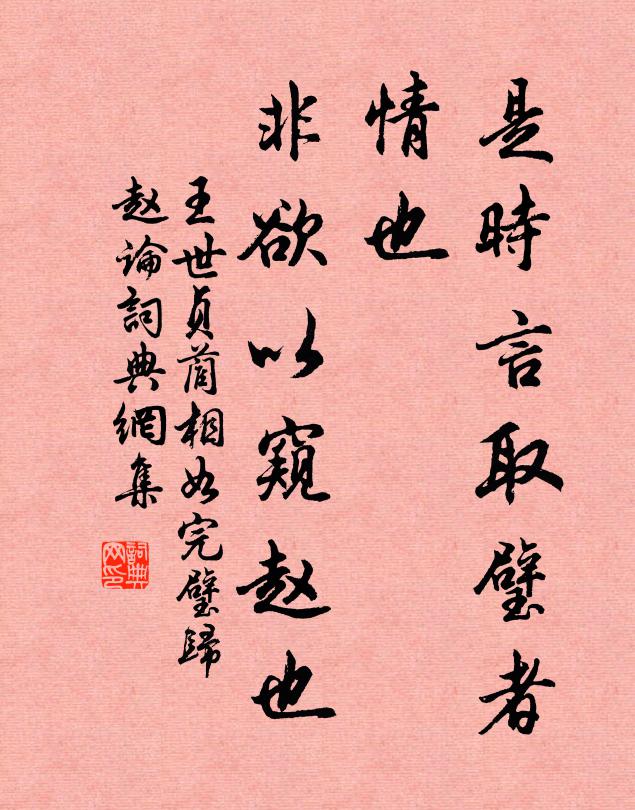 是時言取璧者
情也
非欲以窺赵也
王世贞蔺相如完璧歸
赵論詞典網集
詞典
网印